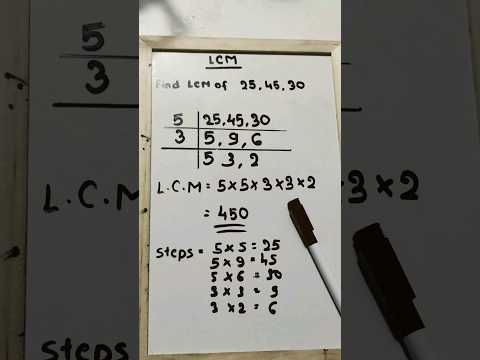 LCM
Find LCM of 25,45,30
5 | 25,45,30
3 | 5, 9, 6
5 3, 2
L.C.M = 5×5×3×3×2
= 450
Steps = 5×5=25
5×9=45
5×6=30
3×3=9
3×2=6
5
3
L.C.M
3×2
steps